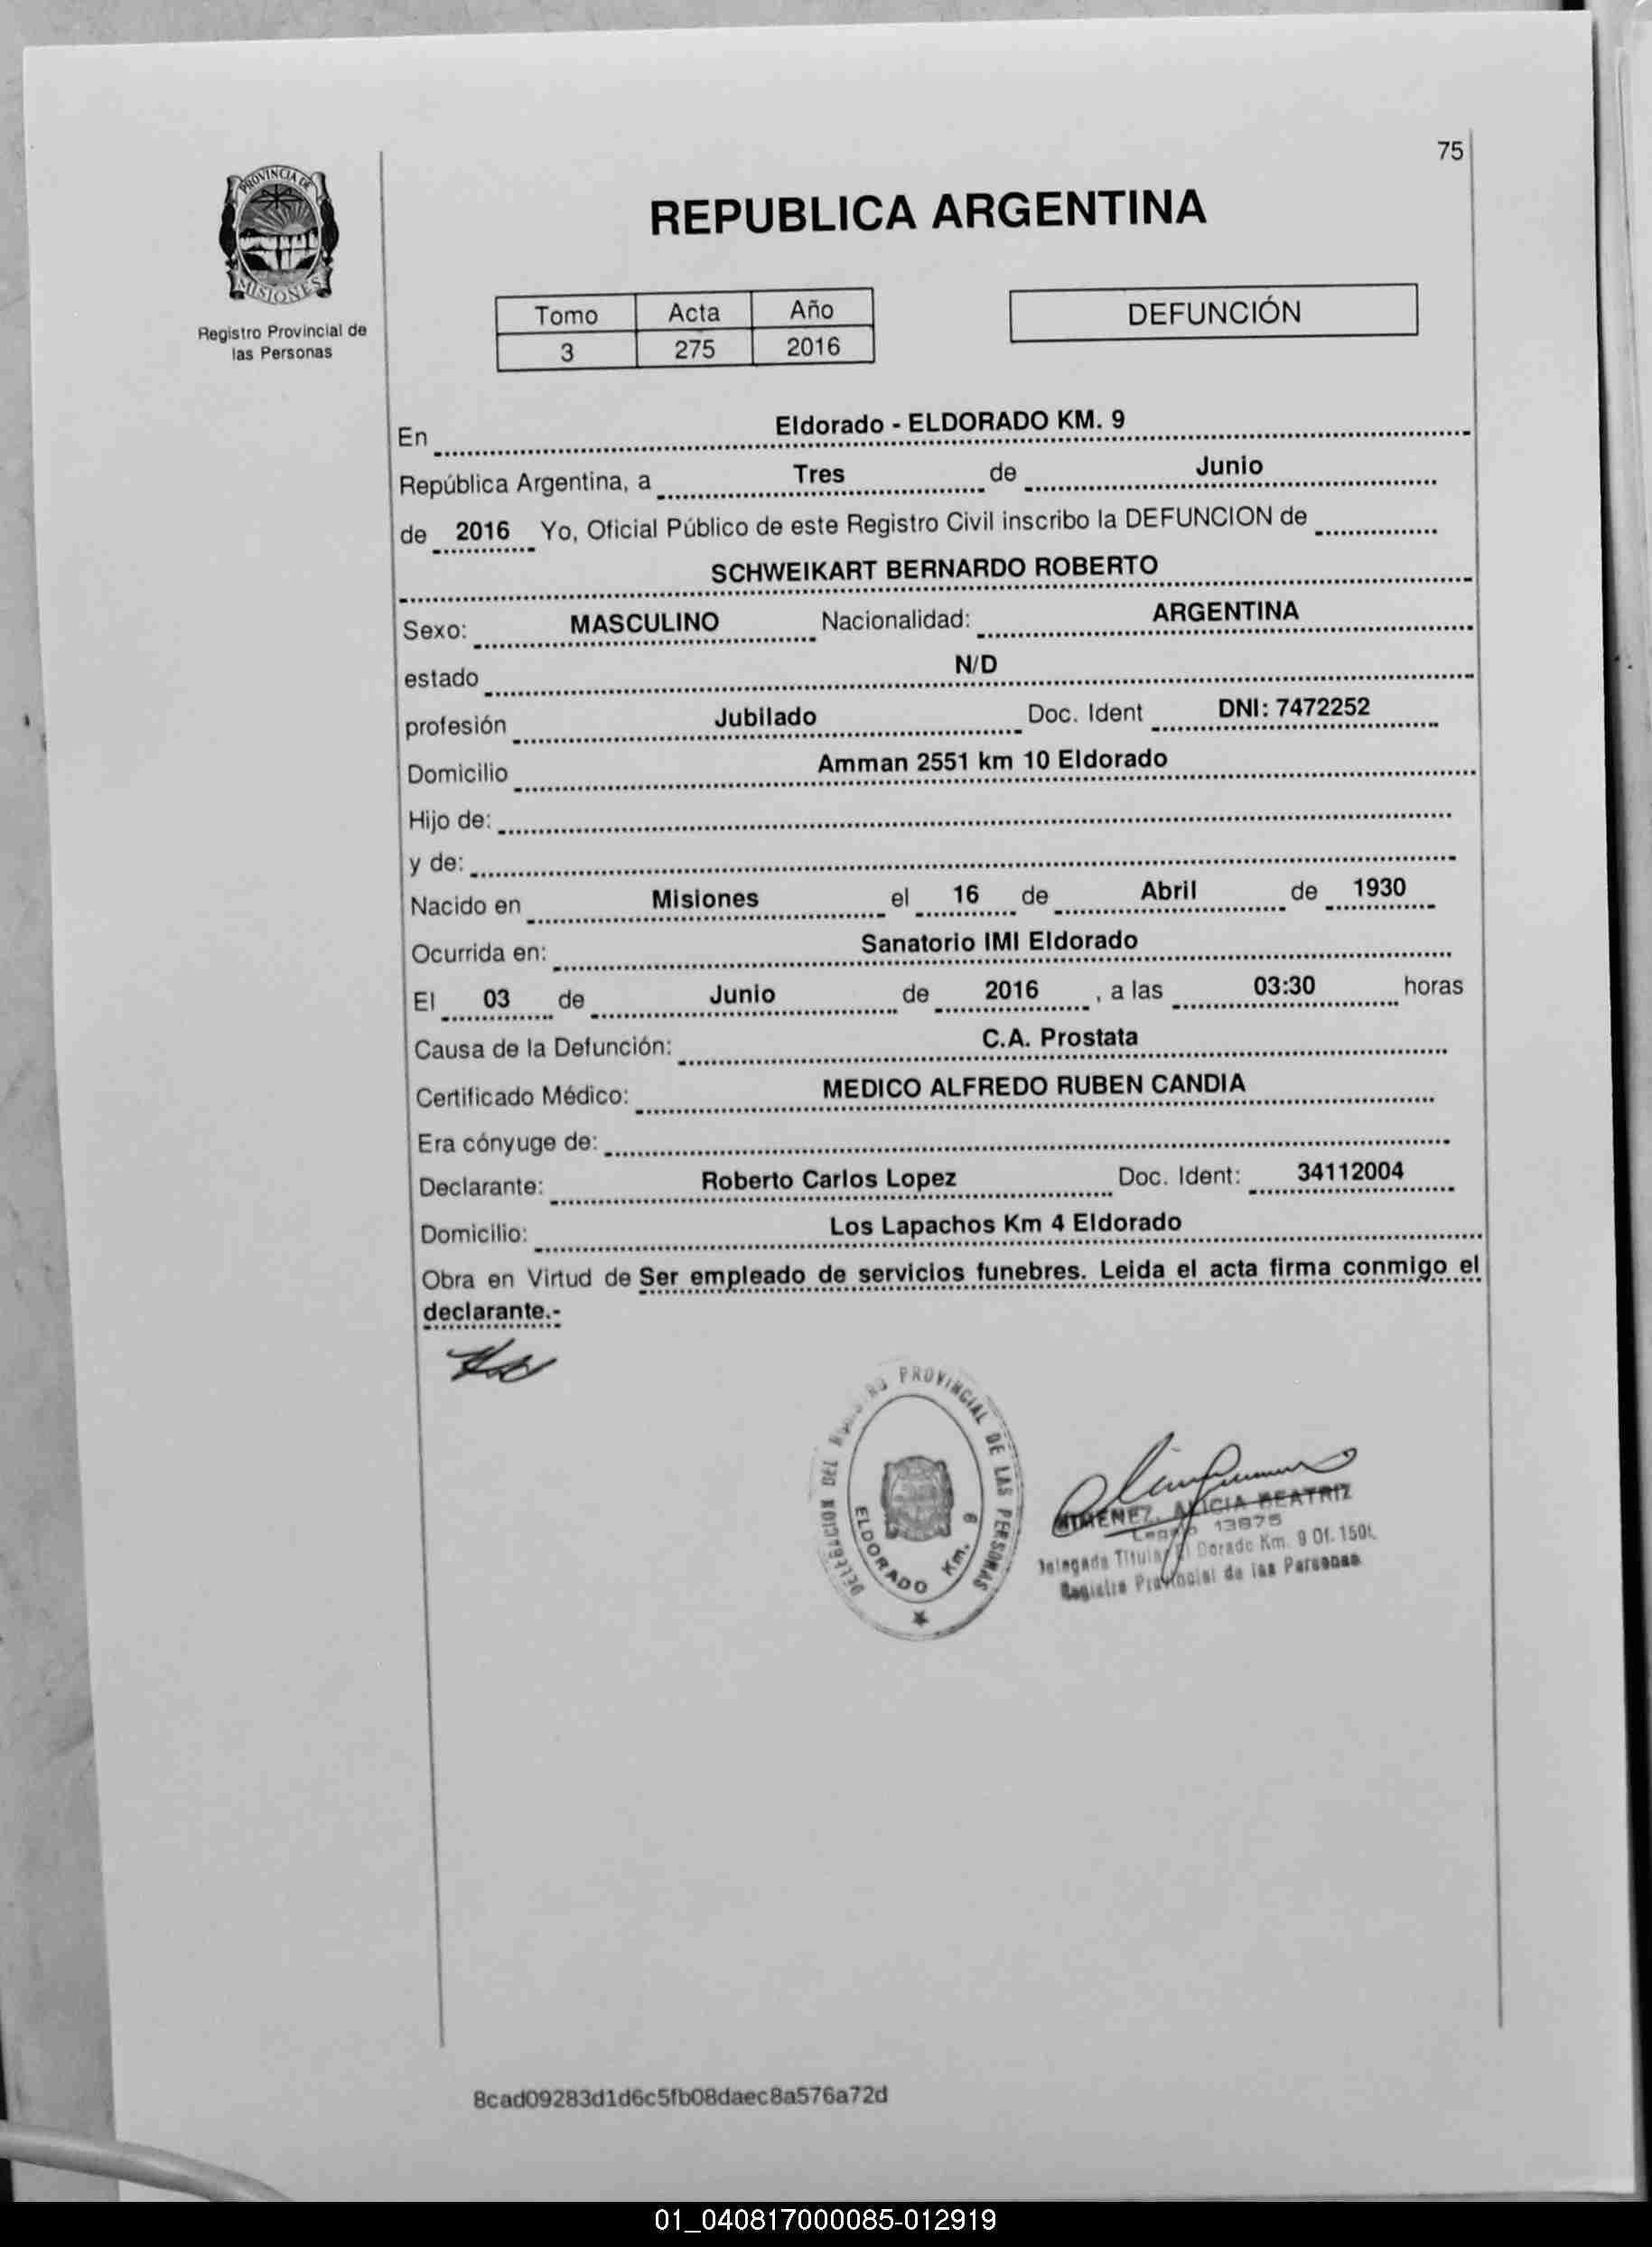 75
PROVINCIA DE
MISIONES
Registro Provincial de
las Personas
REPUBLICA ARGENTINA
Tomo Acta Año
3 275 2016
DEFUNCIÓN
En Eldorado - ELDORADO KM. 9
República Argentina, a Tres de Junio
de 2016 Yo, Oficial Público de este Registro Civil inscribo la DEFUNCION de
SCHWEIKART BERNARDO ROBERTO
Sexo: MASCULINO Nacionalidad: ARGENTINA
estado N/D
profesión Jubilado Doc. Ident DNI: 7472252
Domicilio Amman 2551 km 10 Eldorado
Hijo de:
y de:
Nacido en Misiones el 16 de Abril de 1930
Ocurrida en: Sanatorio IMI Eldorado
El 03 de Junio de 2016 , a las 03:30 horas
Causa de la Defunción: C.A. Prostata
Certificado Médico: MEDICO ALFREDO RUBEN CANDIA
Era cónyuge de:
Declarante: Roberto Carlos Lopez Doc. Ident: 34112004
Domicilio: Los Lapachos Km 4 Eldorado
Obra en Virtud de Ser empleado de servicios funebres. Leida el acta firma conmigo el
declarante.-
DELEGACION DEL PROVINCIAL DE LAS PERSONAS
ELDORADO Km. 9
ALICIA BEATRIZ
13975
Titular Dorado Km. 9 Of. 150
Registro Provincial de las Personas
8cad09283d1d6c5fb08daec8a576a72d
01_040817000085-012919